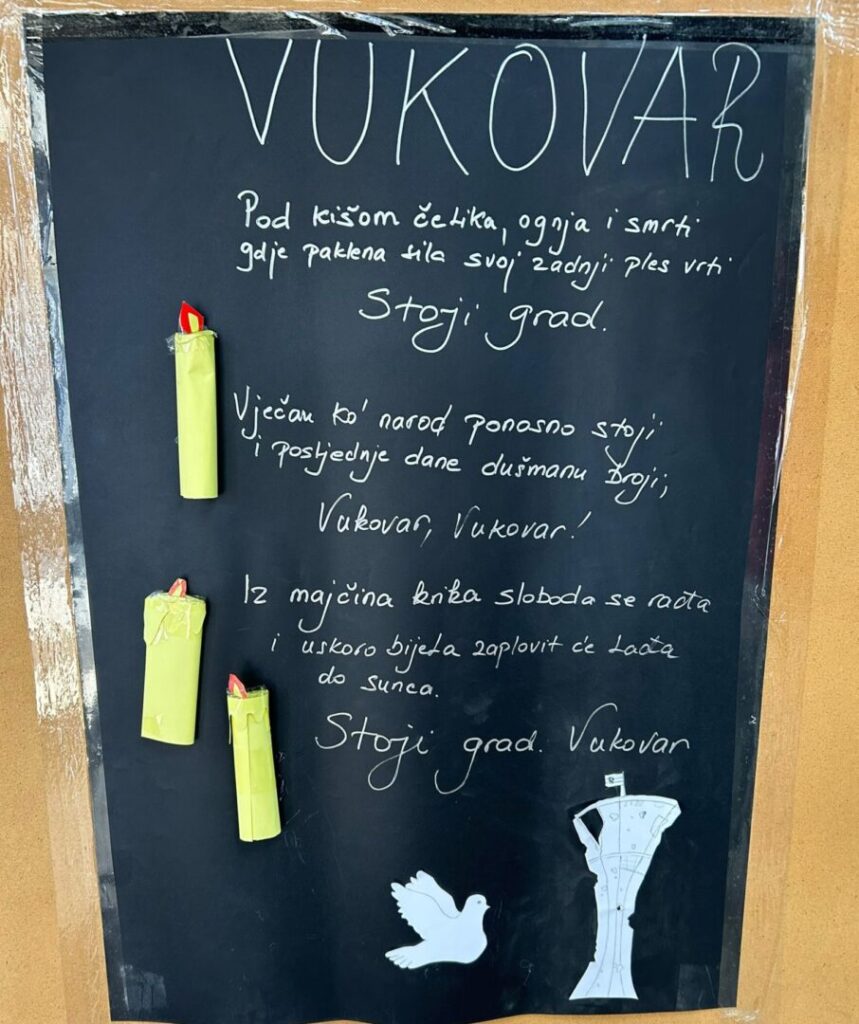 VUKOVAR
Pod kišom čelika, ognja i smrti
gdje paklena sila svoj zadnji ples vrti
Stoji grad.
Vječan ko' narod ponosno stoji
i posljednje dane dušmanu broji;
Vukovar, Vukovar!
Iz majčina krika sloboda se rađa
i uskoro bijela zaplovit će lađa
do sunca.
Stoji grad. Vukovar